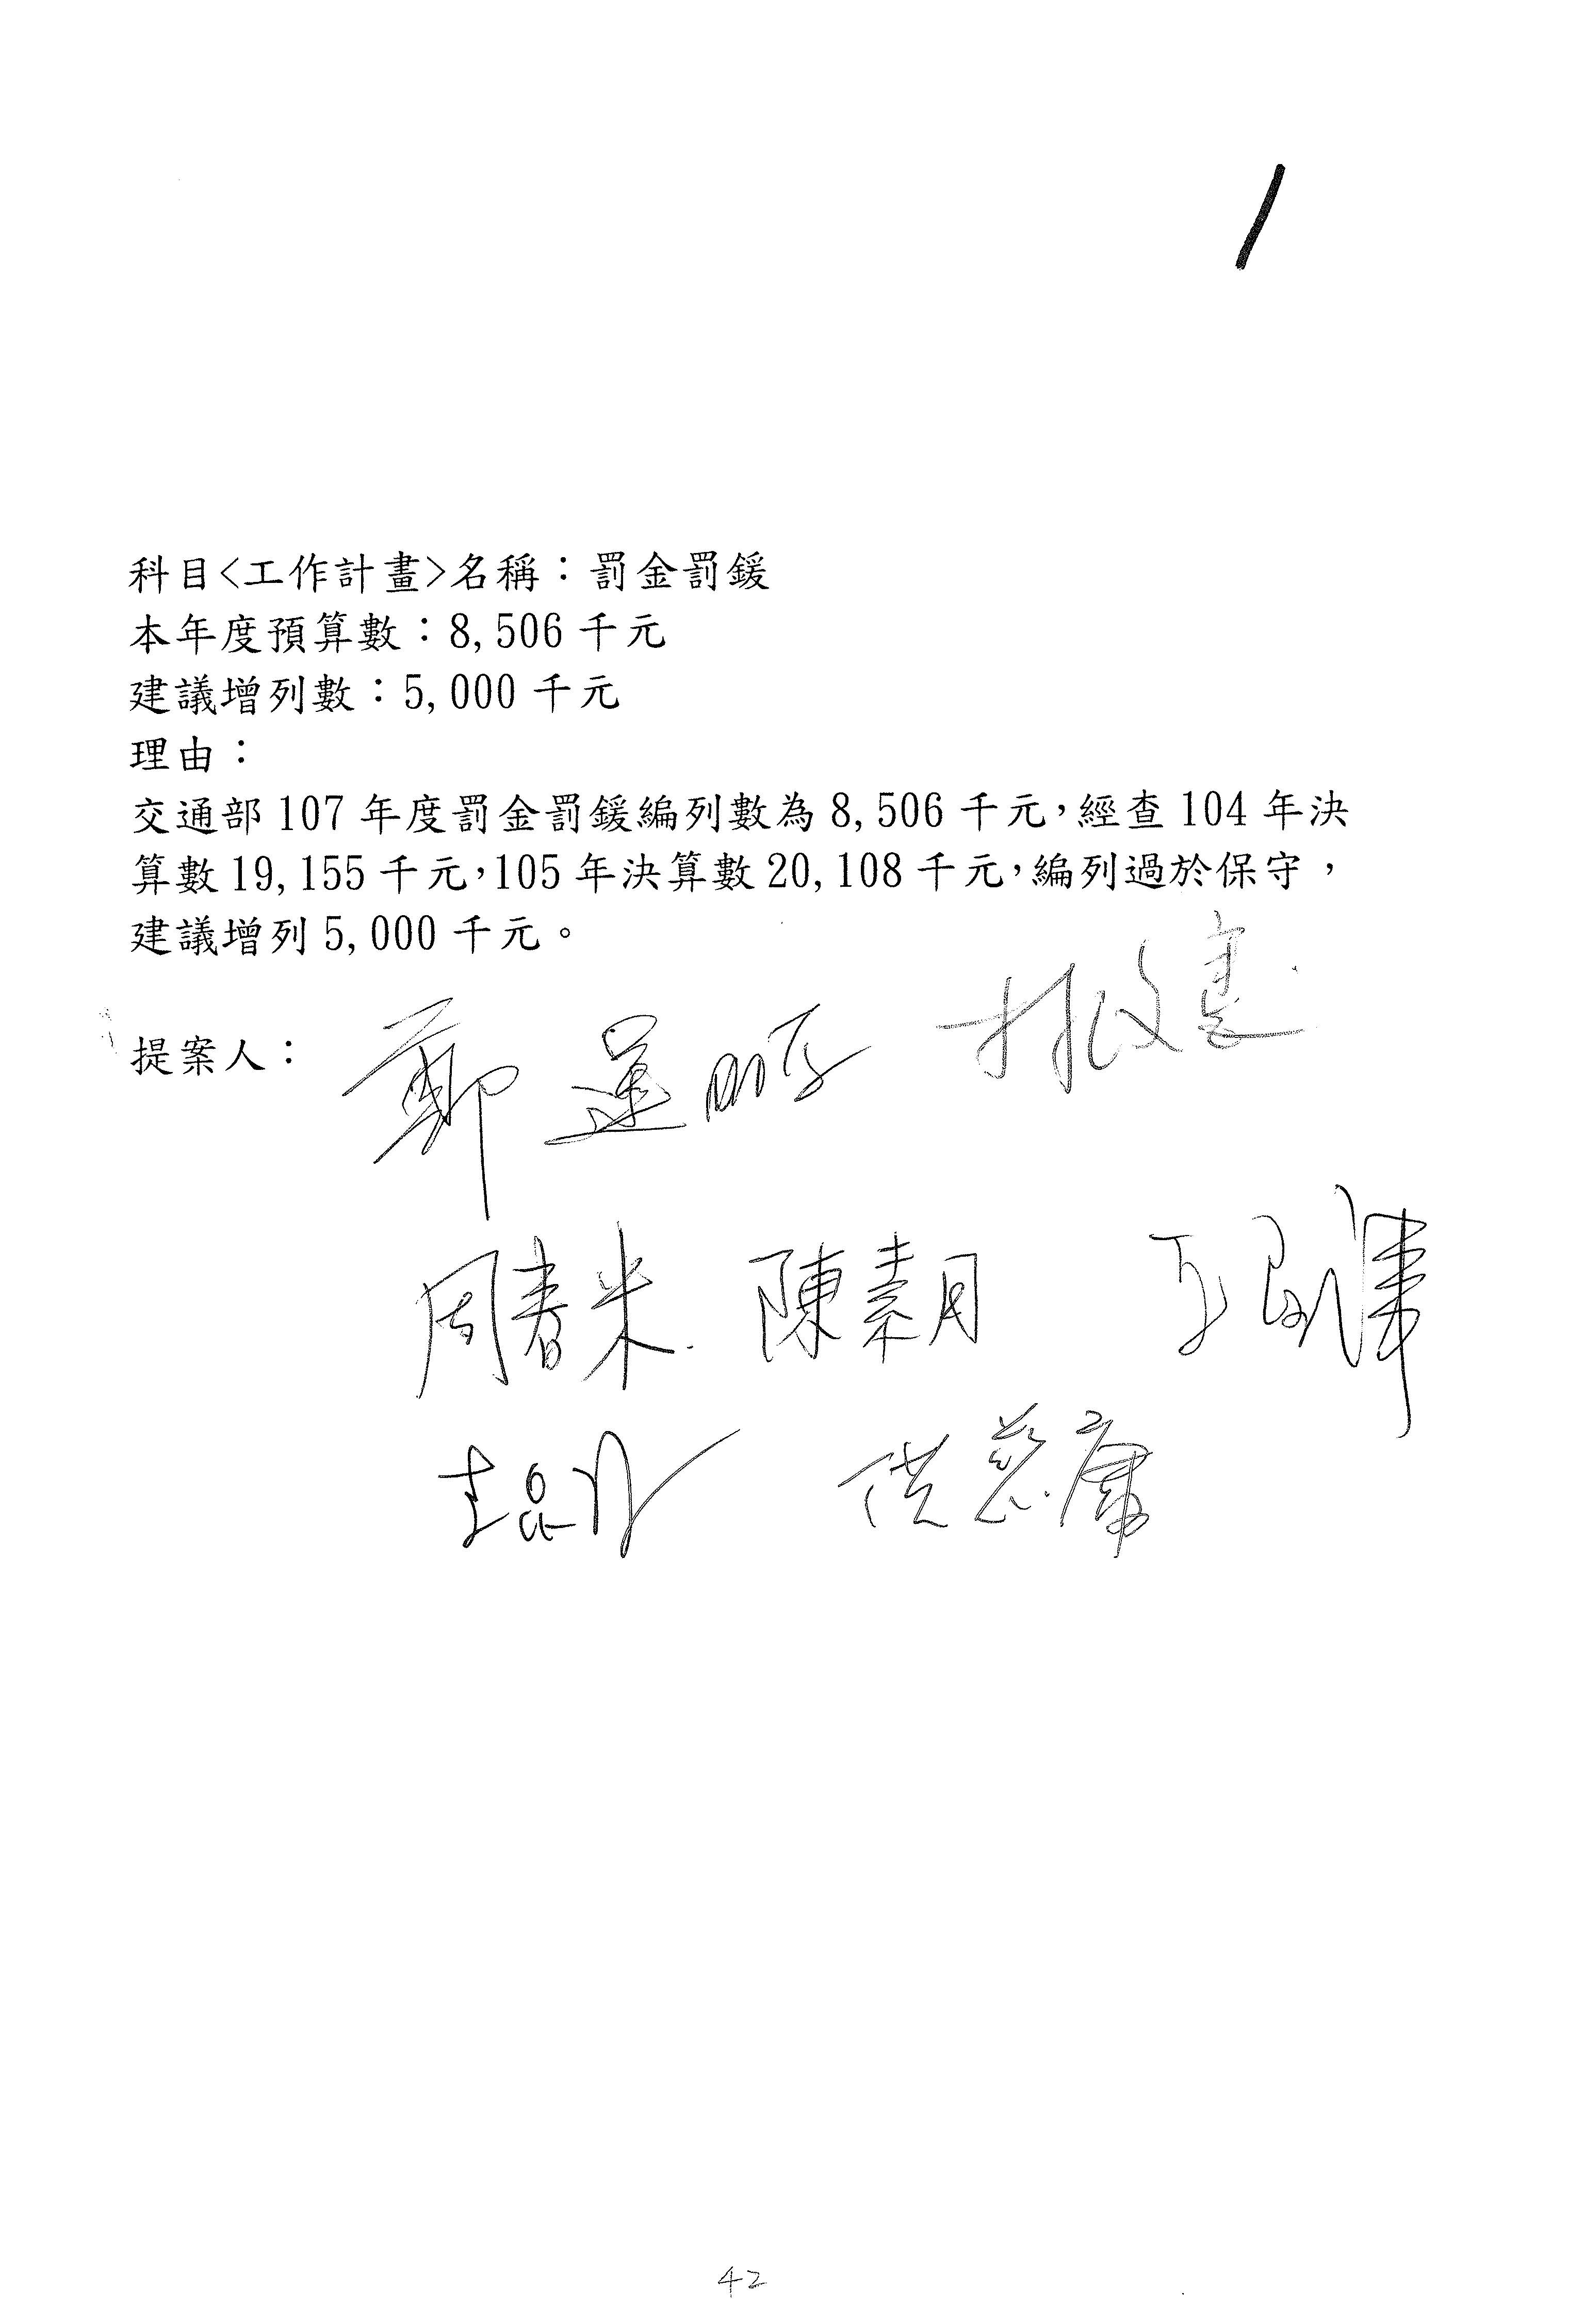 科目<工作計畫>名稱：罰金罰鍰
本年度預算數：8,506 千元
建議增列數：5,000 千元
理由：
交通部 107 年度罰金罰鍰編列數為 8,506 千元，經查 104 年決
算數 19,155 千元，105 年決算數 20,108 千元，編列過於保守，
建議增列 5,000 千元。
提案人：
鄭運鵬
周春米 陳素月
洪慈庸
42